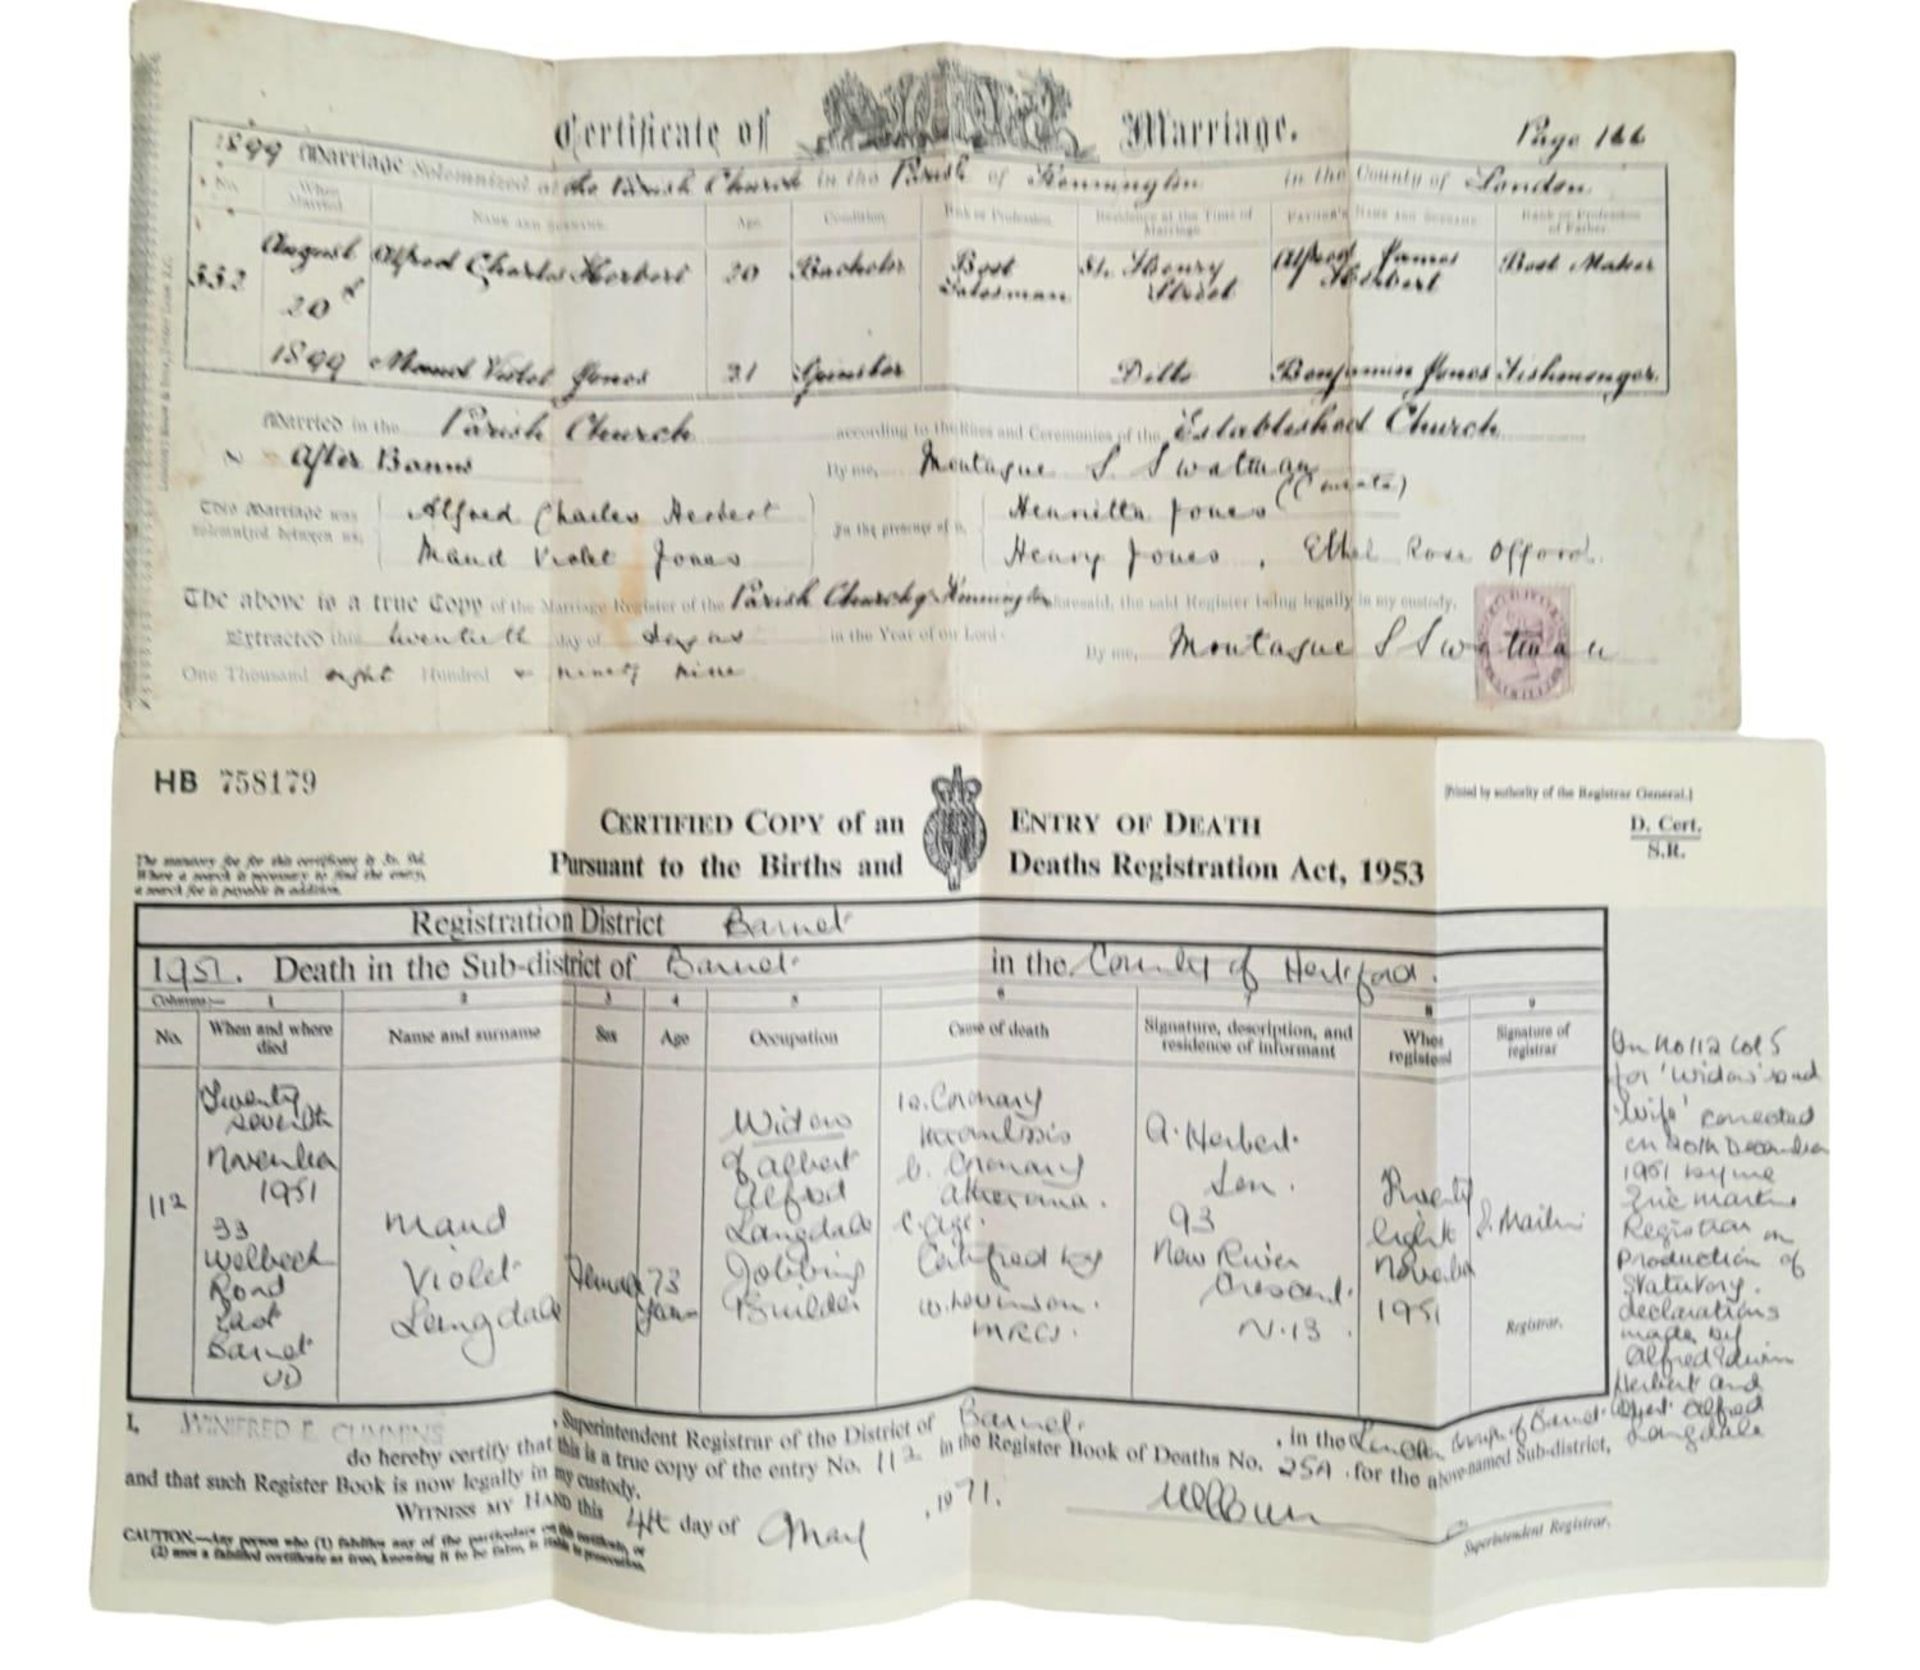 Certificate of Marriage.
Page 166
1899 Marriage Solemnized at the Parish Church in the Parish of Kennington in the County of London
No. When Married. Name and Surname. Age. Condition. Rank or Profession. Residence at the Time of Marriage. Father's Name and Surname. Rank or Profession of Father.
332 August 20th 1899
Alfred Charles Herbert 20 Bachelor Boot Salesman Henry Street Alfred James Herbert Boot Maker
Maud Violet Jones 21 Spinster Ditto Benjamin Jones Fishmonger
Married in the Parish Church according to the Rites and Ceremonies of the Established Church
After Banns By me, Montague S. Swatman (Curate)
This Marriage was solemnized between us, Alfred Charles Herbert In the presence of us, Henrietta Jones
Maud Violet Jones Henry Jones, Ethel Rose Offord.
The above is a true Copy of the Marriage Register of the Parish Church of Kennington aforesaid, the said Register being legally in my custody.
Extracted this twentieth day of August in the Year of our Lord
One Thousand eight Hundred & ninety nine By me, Montague S Swatman
HB 758179
[Printed by authority of the Registrar General.]
CERTIFIED COPY of an ENTRY OF DEATH
D. Cert.
S.R.
Pursuant to the Births and Deaths Registration Act, 1953
The statutory fee for this certificate is
Where a search is necessary to find the entry,
a search fee is payable in addition.
Registration District Barnet
1951. Death in the Sub-district of Barnet in the County of Hertford.
Columns:— 1 2 3 4 5 6 7 8 9
No. When and where died Name and surname Sex Age Occupation Cause of death Signature, description, and residence of informant When registered Signature of registrar
112
Twenty
seventh
November
1951
33
Welbeck
Road
East
Barnet
UD
Maud
Violet
Langdale
Female
73
Years
Widow
of Albert
Alfred
Langdale
Jobbing
Builder
1a. Coronary
thrombosis
b. Coronary
atheroma.
c. Age.
Certified by
MRCS.
A. Herbert.
Son.
93
New River
Crescent.
N.13.
Twenty
eight
November
1951
Registrar.
On No 112 Col 5
for 'Widow' read
'Wife' corrected
on 20th December
1951 by me
Eric Martin
Registrar on
production of
Statutory
declarations
made by
Alfred Edwin
Herbert and
Albert Alfred
Langdale
I, WINIFRED E. CUMMINS, Superintendent Registrar of the District of Barnet, in the London Borough of Barnet
do hereby certify that this is a true copy of the entry No. 112 in the Register Book of Deaths No. 25A for the above-named Sub-district,
and that such Register Book is now legally in my custody.
WITNESS MY HAND this 4th day of May, 1971.
Superintendent Registrar.
CAUTION.—Any person who (1) falsifies any of the particulars on this certificate, or
(2) uses a falsified certificate as true, knowing it to be false, is liable to prosecution.